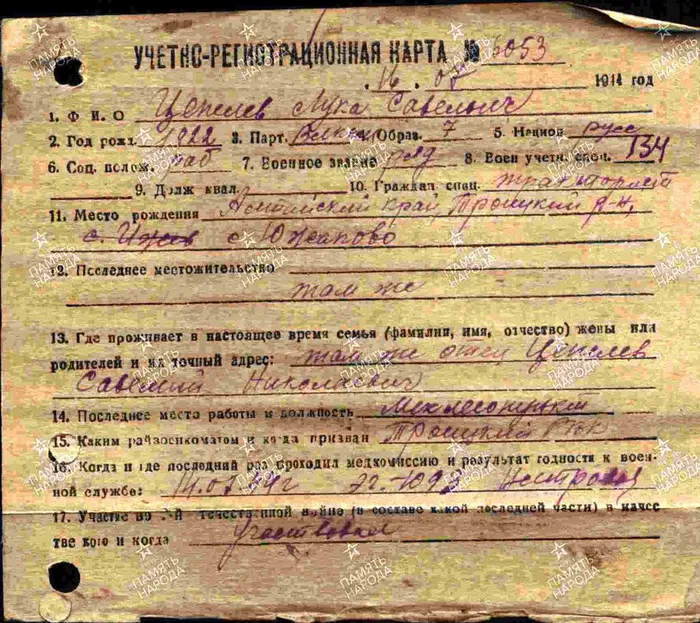 УЧЕТНО-РЕГИСТРАЦИОННАЯ КАРТА № 6053
16. 07 1944 год
1. Ф И О Цепелев Лука Савельич
2. Год рожд. 1922 3. Парт. Влксм Образ. 7 5. Национ русс
6. Соц. полож. раб 7. Военное звание ряд 8. Воен учетн. спец. 134
9. Долж квал. 10. Граждан спец. тракторист
11. Место рождения Алтайский край, Троицкий р-н,
с. Южаково
12. Последнее местожительство
там же
13. Где проживает в настоящее время семья (фамилия, имя, отчество) жены или
родителей и их точный адрес: там же отец Цепелев
Савелий Николаевич
14. Последнее место работы и должность
15. Каким райвоенкоматом и когда призван Троицкий РВК
16. Когда и где последний раз проходил медкомиссию и результат годности к воен-
ной службе:
17. Участие во отечественной войне (в составе какой последней части) в качес
тве кого и когда участвовал
ПАМЯТЬ НАРОДА